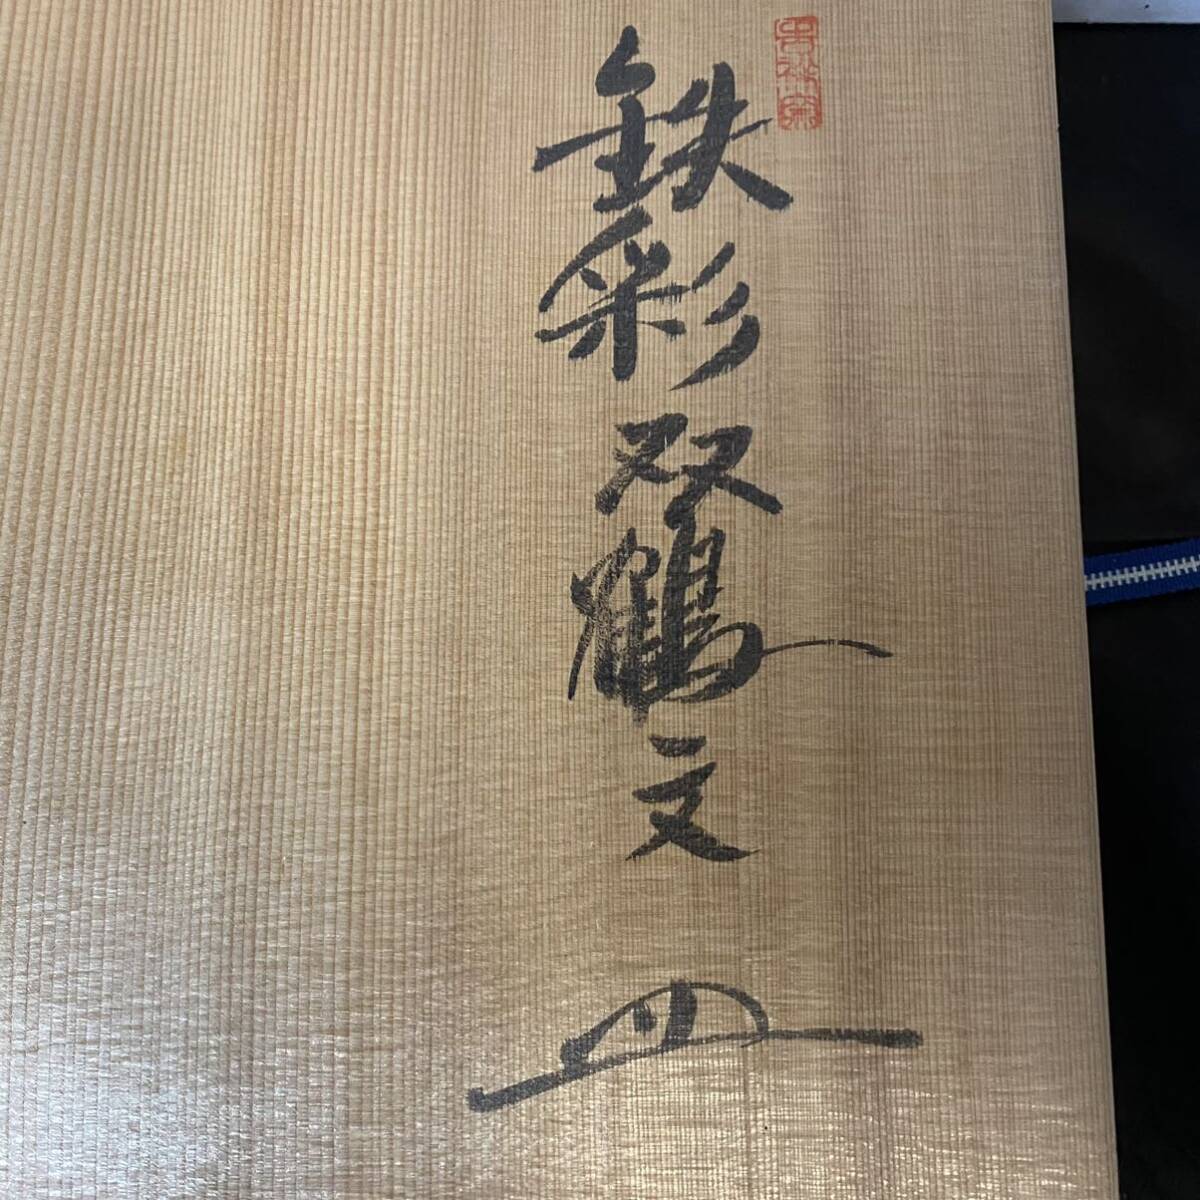 鉄彩双鶴文皿